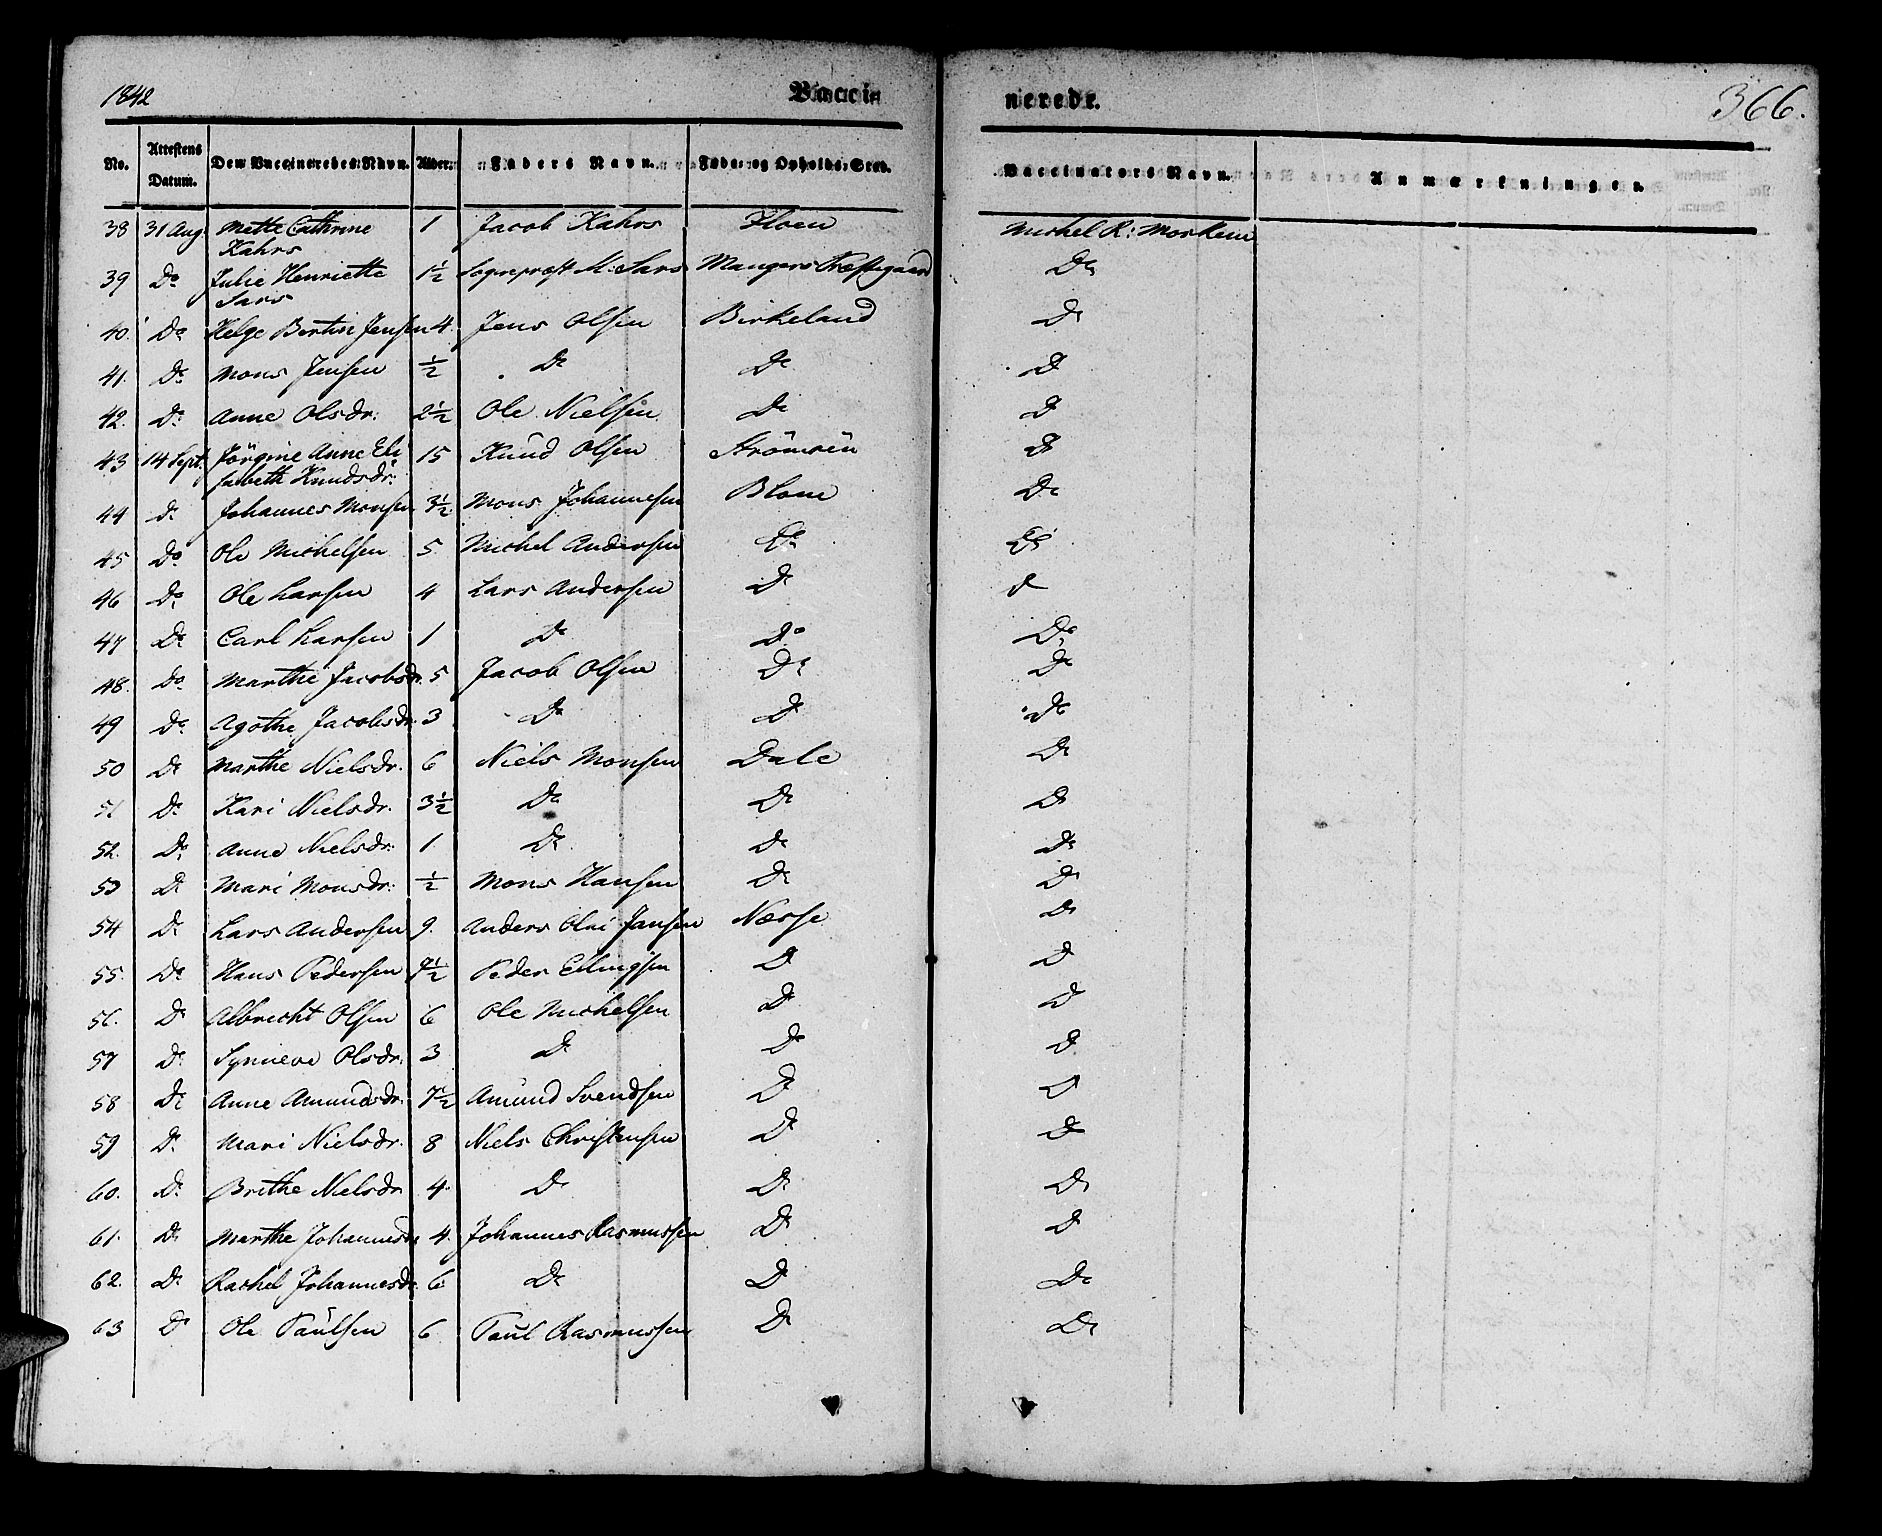 1842 Vaccinerede. 366.
No. Attestens Datum. Den Vaccineredes Navn. Alder. Faders Navn. Føde- og Opholds-Sted. Vaccinators Navn. Anmærkninger.
38 31 Aug. Mette Cathrine 1 Jacob Kahrs Floen Michel R: Morken
Kahrs
39 Do Julie Henriette 1½ Sognepræst M: Sars Mangers Præstegaard Do
Sars
40. Do Helge Bertin Jensen 4. Jens Olsen Birkeland D
41. Do Mons Jensen ½ Do Do D
42. Do Anne Olsdr: 2½ Ole Nielsen D D
43 14 Sept. Jörgine Anne Eli 15 Knud Olsen Strömsen D
sabeth Knudsdr:
44 D Johannes Monsen 3½ Mons Johannesen Blom Do
45 Do Ole Michelsen 5. Michel Andersen Do Do
46 Do Ole Larsen 4 Lars Andersen D D
47 Do Carl Larsen 1 Do Do Do
48. Do Marthe Jacobsdr. 5 Jacob Olsen Do Do
49 Do Agothe Jacobsdr. 3 Do D Do
50 D Marthe Nielsdr. 6 Niels Monsen Dale D
51 Do Kari Nielsdr. 3½ Do D D
52. Do Anne Nielsdr: 1 Do Do Do
53 D Mari Monsdr: ½ Mons Hansen D D
54 D Lars Andersen 9. Anders Olai Jansen Næsse D
55. Do Hans Pedersen 9½ Peder Ellingsen D D
56. D Albrecht Olsen 6 Ole Michelsen D D
57 D Synneve Olsdr. 3 D Do D
58 D Anne Amundsdr. 7½ Amund Svendsen D D
59 D Mari Nielsdr. 8 Niels Christensen D D
60. D Brithe Nielsdr 4. D D D
61. D Marthe Johannesdr 4. Johannes Rasmussen D D
62. D Rachel Johannesdr. 6 Do D Do
63 D Ole Paulsen 6. Paul Rasmussen D D